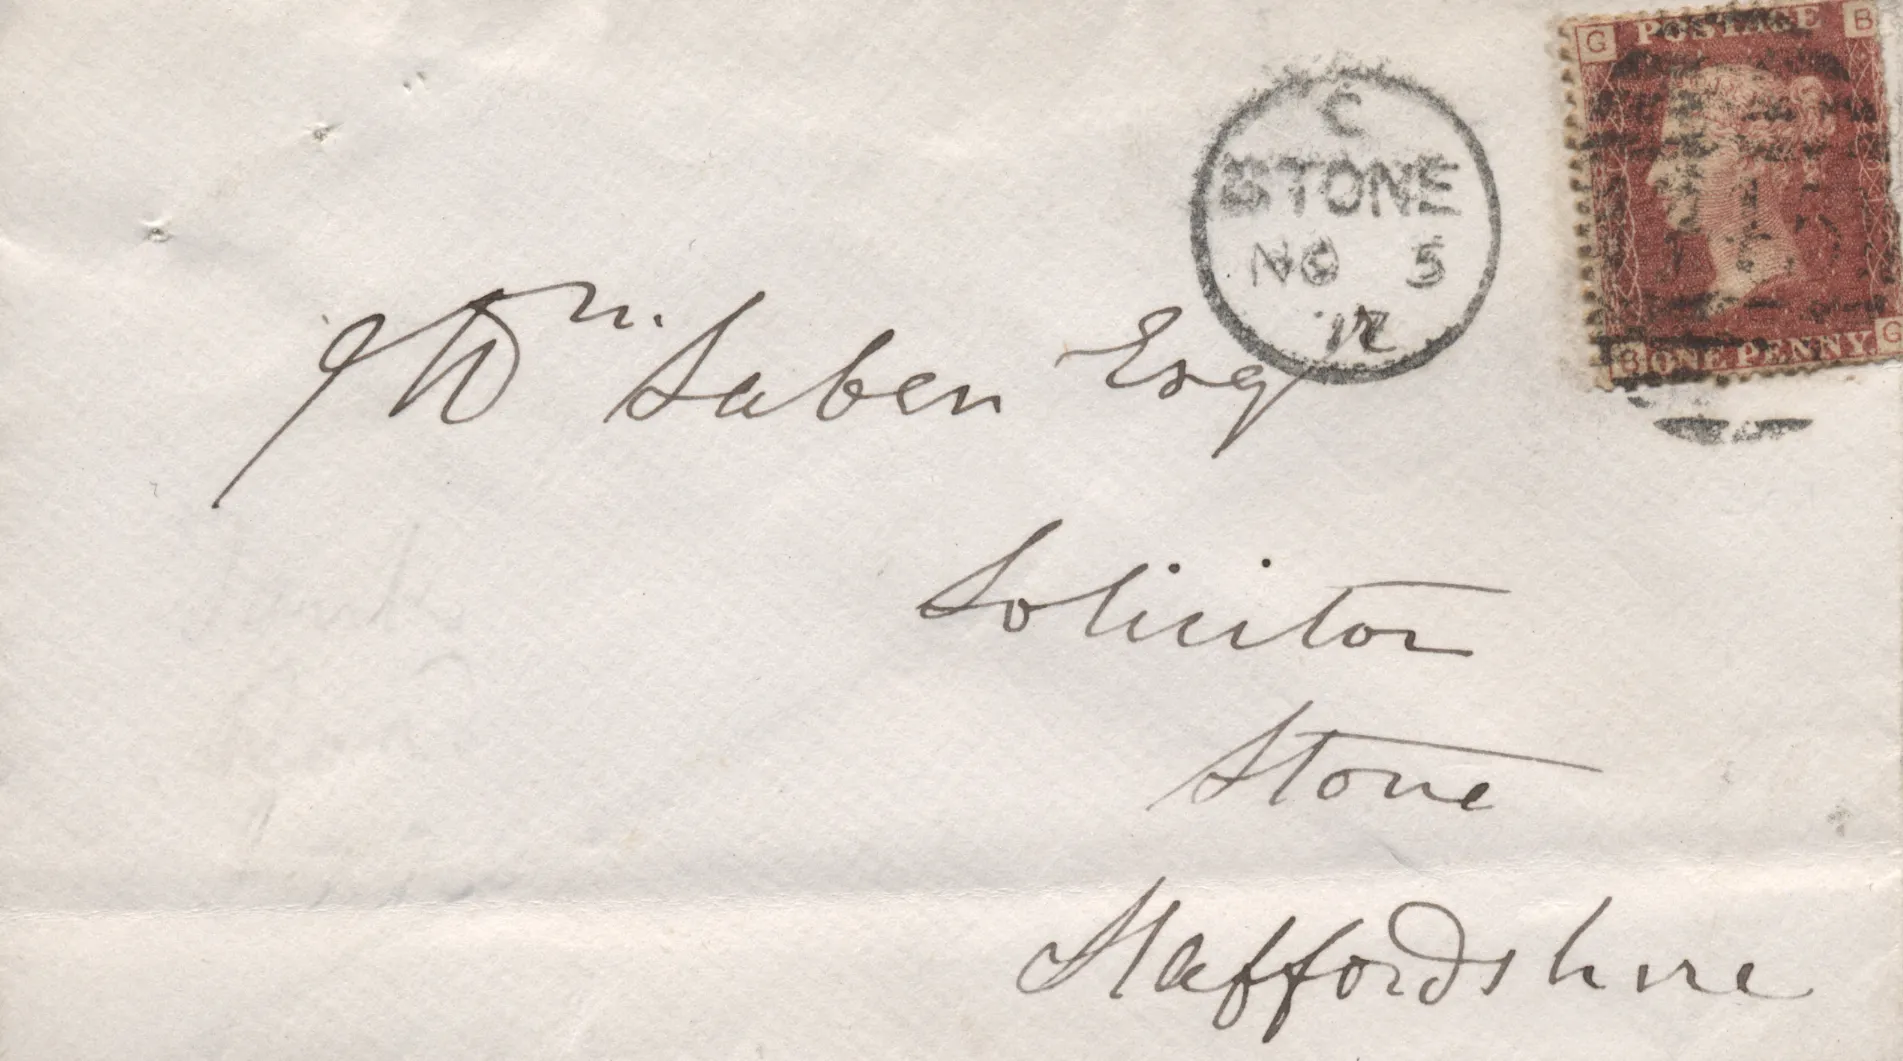 G POSTAGE B
C
STONE
NO 5
72
B ONE PENNY G
Wm. Saben Esq
Solicitor
Stone
Staffordshire